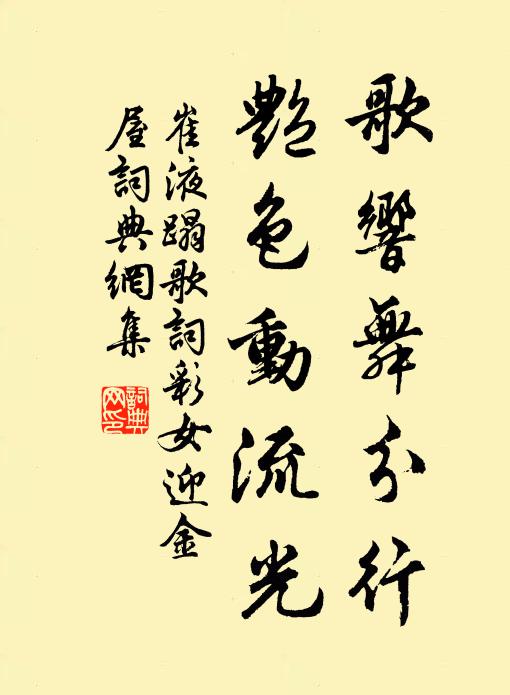 歌響舞分行
艷色動流光
崔液蹋歌詞彩女迎金
屋詞典網集
詞典
网印